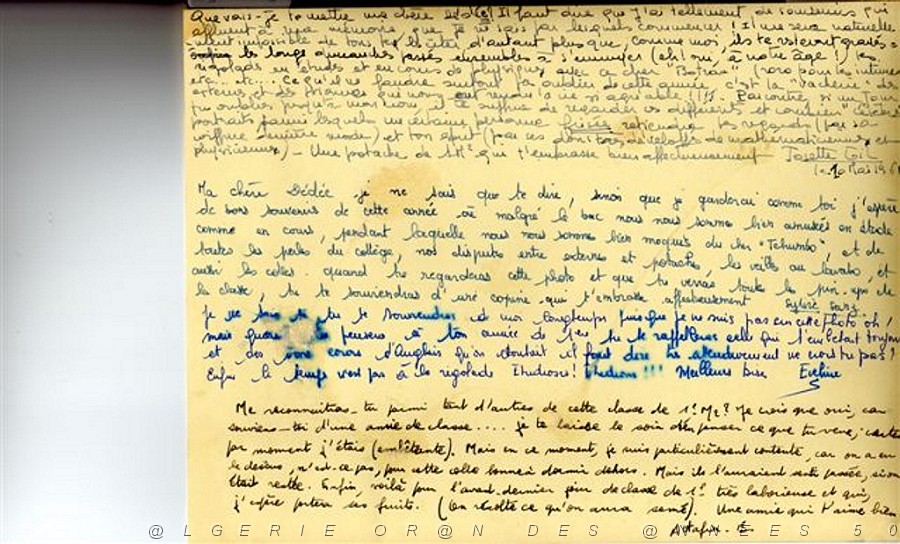 Que vais-je te mettre ma chère Dédée! Il faut dire que j'ai tellement de souvenirs qui
affluent à ma mémoire, que je ne sais par lesquels commencer! Il me sera naturelle-
-ment impossible de tous te les citer d'autant plus que, comme moi, ils te resteront gravés =
les longs dimanches passés ensembles à s'ennuyer (eh! oui, à notre âge!) les
rigolades en études et en cours de physique avec ce cher (pour les intimes
etc... etc... Ce qu'il ne faudra surtout pas oublier de cette année, c'est la vacherie des
externes et des qui nous ont rendu la vie si agréable!!!
tu oublies jusqu'à mon nom, il te suffira de regarder ces différents et combien célèbres
portraits parmi lesquels une certaine personne frisée retiendra tes regards (par sa
coiffure dernière mode) et ton esprit (par ses dons très développés de mathématicienne et
physicienne) - Une potache de 1 M² qui t'embrasse bien affectueusement Josette
le 10 Mai 196
Ma chère Dédée je ne sais que te dire, sinon que je garderai comme toi j'espère
de bons souvenirs de cette année où malgré le bac nous nous sommes bien amusées en étude
comme en cours, pendant laquelle nous nous sommes bien moqués du cher "Tchumbo", et de
toutes les perles du collège, nos disputes entre externes et potaches, les veilles au lavabo, et
aussi les colles. quand tu regarderas cette photo et que tu verras toute la pin-ups de
la classe, tu te souviendras d'une copine qui t'embrasse affectueusement Sylvie Sanz.
Je ne sais si tu te souviendras de moi longtemps puisque je ne suis pas sur cette photo oh!
mais quand tu penseras à ton année de 1ère tu te rappelleras celle qui t'embêtait toujours
et des bons cours d'Anglais qu'on chantait il faut dire très attendrissement ne crois tu pas?
Enfin le temps n'est pas à la rigolade Etudions! Etudions!!! Meilleurs bises Eveline
Me reconnaîtras-tu parmi tant d'autres de cette classe de 1° M2? Je crois que oui, car
souviens-toi d'une amie de classe.... je te laisse le soin d'en penser ce que tu veux; certes
par moment j'étais (embêtante). Mais en ce moment, je suis particulièrement contente, car on a eu
le dessus, n'est-ce pas, pour cette colle bonne à dormir dehors. Mais ils l'auraient sentie passée, si on
était restée. Enfin, voilà pour l'avant-dernier jour de classe de 1° très laborieuse et qui,
j'espère portera ses fruits. (On récolte ce qu'on aura semé). Une amie qui t'aime bien
@ L G E R I E O R @ N D E S @ N N E E S 5 0